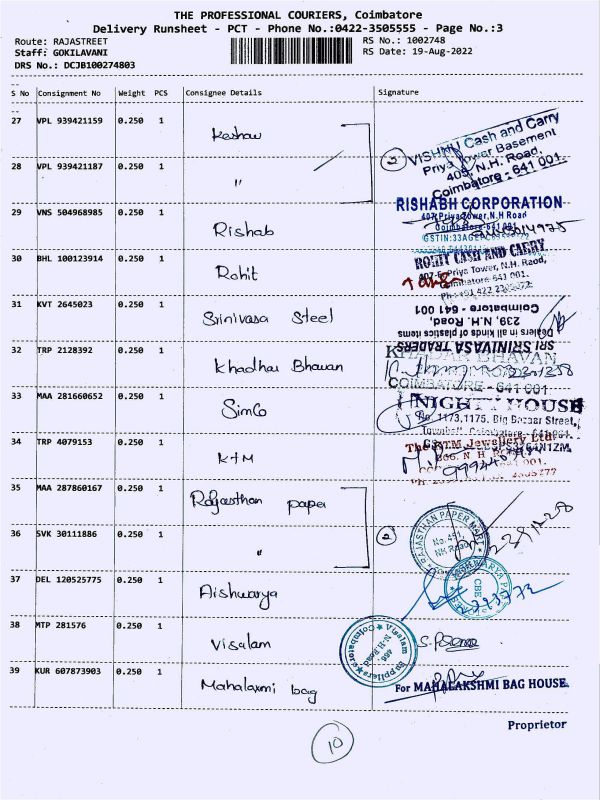 THE PROFESSIONAL COURIERS, Coimbatore
Delivery Runsheet - PCT - Phone No.:0422-3505555 - Page No.:3
Route: RAJASTREET
RS No.: 1002748
Staff: GOKILAVANI
RS Date: 19-Aug-2022
DRS No.: DCJB100274803
S No Consignment No Weight PCS Consignee Details Signature
27 VPL 939421159 0.250 1 Keshav
VISHNU Cash and Carry
Priya Tower Basement
405, N.H. Road,
Coimbatore - 641 001.
28 VPL 939421187 0.250 1 "
29 VNS 504968985 0.250 1 Rishab
RISHABH CORPORATION
407, Priya Tower, N.H Road
Coimbatore-641 001
30 BHL 100123914 0.250 1 Rohit
ROHIT CASH AND CARRY
Priya Tower, N.H. Road,
Coimbatore 641 001.
31 KVT 2645023 0.250 1 Srinivasa Steel
SRI SRINIVASA TRADERS
Dealers in all kinds of plastics items
239, N.H. Road,
Coimbatore - 641 001
32 TRP 2128392 0.250 1 Khadhar Bhavan
BHAVAN
COIMBATORE - 641 001
33 MAA 281660652 0.250 1 SimCo
NIGHTY HOUSE
No. 1173,1175, Big Bazaar Street,
34 TRP 4079153 0.250 1 KTM
The KTM Jewellery Ltd.
35 MAA 287860167 0.250 1 Rajasthan paper
RAJASTHAN PAPER MART
No.491,
NK Road
36 SVK 30111886 0.250 1 "
37 DEL 120525775 0.250 1 Aishwarya
CBE
38 MTP 281576 0.250 1 Visalam
Visalam Suppliers
N.H.Road
Coimbatore
39 KUR 607873903 0.250 1 Mahalaxmi bag
For MAHALAKSHMI BAG HOUSE.
Proprietor
10